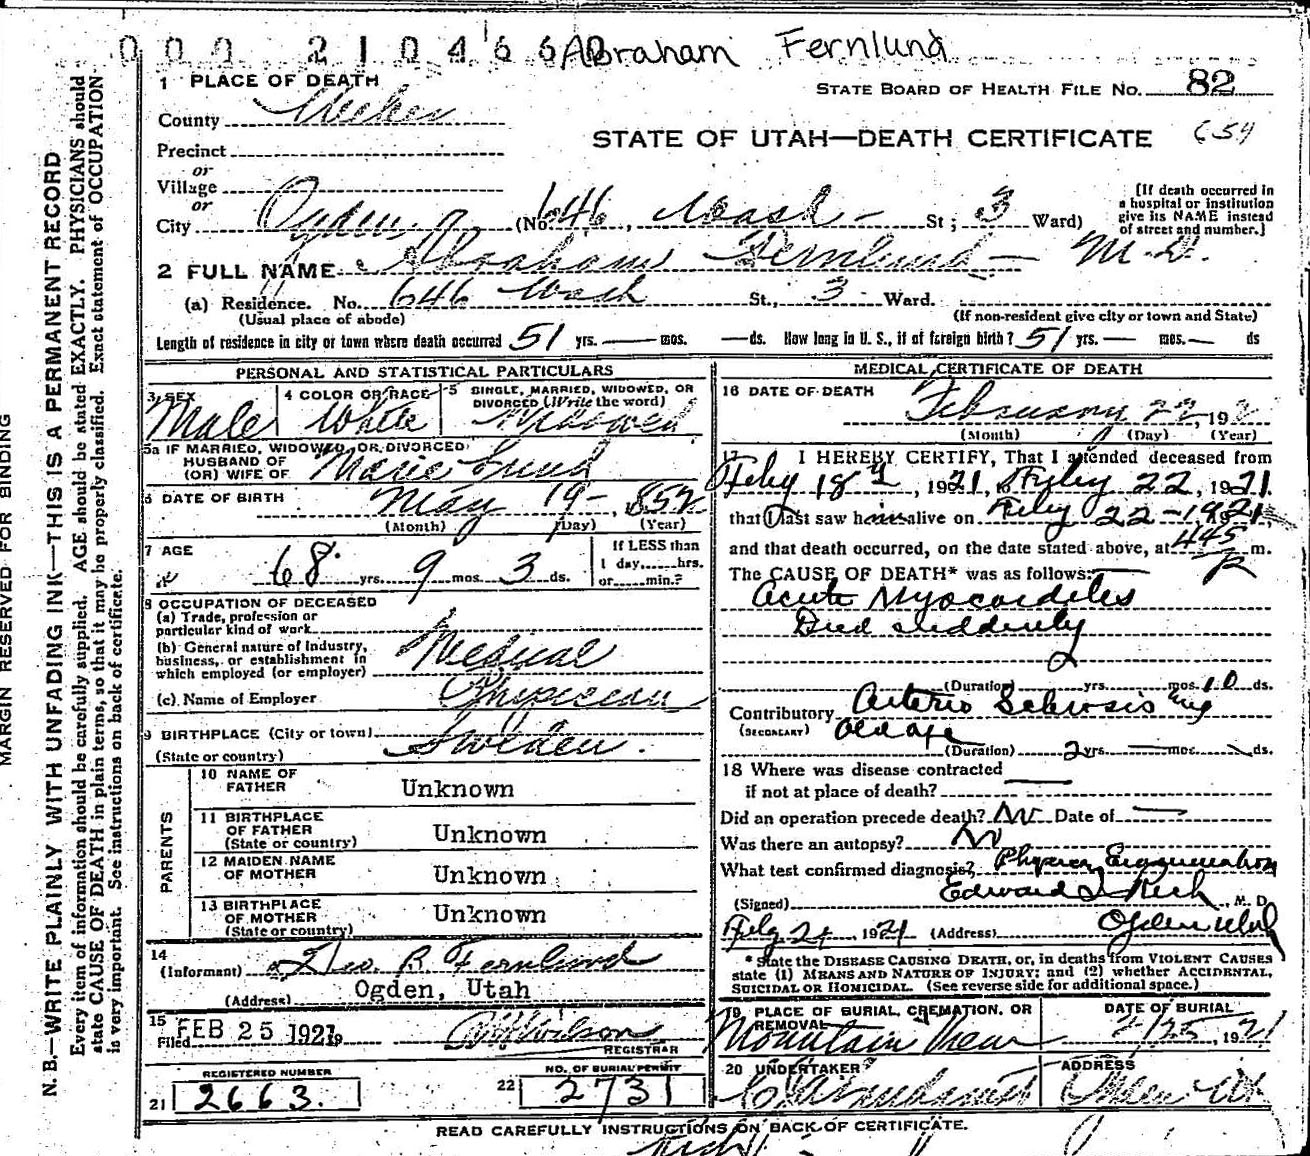 000 210466
Abraham Fernlund
1 PLACE OF DEATH
STATE BOARD OF HEALTH FILE NO. 82
County Weber
STATE OF UTAH—DEATH CERTIFICATE 654
Precinct
or
Village
or
City Ogden (No. 646, Wash - St; 3 Ward)
[If death occurred in
a hospital or institution
give its NAME instead
of street and number.]
2 FULL NAME Abraham Fernlund - M.D.
(a) Residence. No. 646 Wash St., 3 Ward.
(Usual place of abode) (If non-resident give city or town and State)
Length of residence in city or town where death occurred 51 yrs. — mos. — ds. How long in U. S., if of foreign birth? 51 yrs. — mos. — ds
PERSONAL AND STATISTICAL PARTICULARS
3 SEX
Male
4 COLOR OR RACE
White
5 SINGLE, MARRIED, WIDOWED, OR
DIVORCED (Write the word)
Widowed
5a IF MARRIED, WIDOWED, OR DIVORCED
HUSBAND OF
(OR) WIFE OF Marie Lund
6 DATE OF BIRTH May 19 - 1852
(Month) (Day) (Year)
7 AGE
68 yrs. 9 mos. 3 ds.
If LESS than
1 day,......hrs.
or......min.?
8 OCCUPATION OF DECEASED
(a) Trade, profession or
particular kind of work
(b) General nature of Industry,
business, or establishment in
which employed (or employer) Medical
(c) Name of Employer Physician
9 BIRTHPLACE (City or town)
(State or country) Sweden.
PARENTS
10 NAME OF
FATHER Unknown
11 BIRTHPLACE
OF FATHER
(State or country) Unknown
12 MAIDEN NAME
OF MOTHER Unknown
13 BIRTHPLACE
OF MOTHER
(State or country) Unknown
14
(Informant) Geo. B. Fernlund
(Address) Ogden, Utah
15
Filed FEB 25 1921
Wilson
REGISTRAR
REGISTERED NUMBER
21 2663.
NO. OF BURIAL PERMIT
22 2731
MEDICAL CERTIFICATE OF DEATH
16 DATE OF DEATH
February 22, 192
(Month) (Day) (Year)
17 I HEREBY CERTIFY, That I attended deceased from
Feby 18, 1921, to Feby 22, 1921.
that I last saw him alive on Feby 22 - 1921,
and that death occurred, on the date stated above, at 445 P m.
The CAUSE OF DEATH* was as follows:
Acute Myocarditis
Died suddenly
(Duration) yrs. mos. 10 ds.
Contributory Arterio Sclerosis
(SECONDARY) Old age
(Duration) 2 yrs. — mos. ds.
18 Where was disease contracted
if not at place of death? —
Did an operation precede death? No Date of —
Was there an autopsy? No
What test confirmed diagnosis? Physical Examination
(Signed) Edward I Rich, M. D
Feby 24, 1921 (Address) Ogden Utah
* State the DISEASE CAUSING DEATH, or, in deaths from VIOLENT CAUSES
state (1) MEANS AND NATURE OF INJURY; and (2) whether ACCIDENTAL,
SUICIDAL OR HOMICIDAL. (See reverse side for additional space.)
19 PLACE OF BURIAL, CREMATION, OR
REMOVAL
Mountain View
DATE OF BURIAL
2/25, 1921
20 UNDERTAKER
ADDRESS
Ogden Ut
READ CAREFULLY INSTRUCTIONS ON BACK OF CERTIFICATE.
MARGIN RESERVED FOR BINDING
N. B.—WRITE PLAINLY WITH UNFADING INK—THIS IS A PERMANENT RECORD
Every item of information should be carefully supplied. AGE should be stated EXACTLY. PHYSICIANS should
state CAUSE OF DEATH in plain terms, so that it may be properly classified. Exact statement of OCCUPATION
is very important. See instructions on back of certificate.